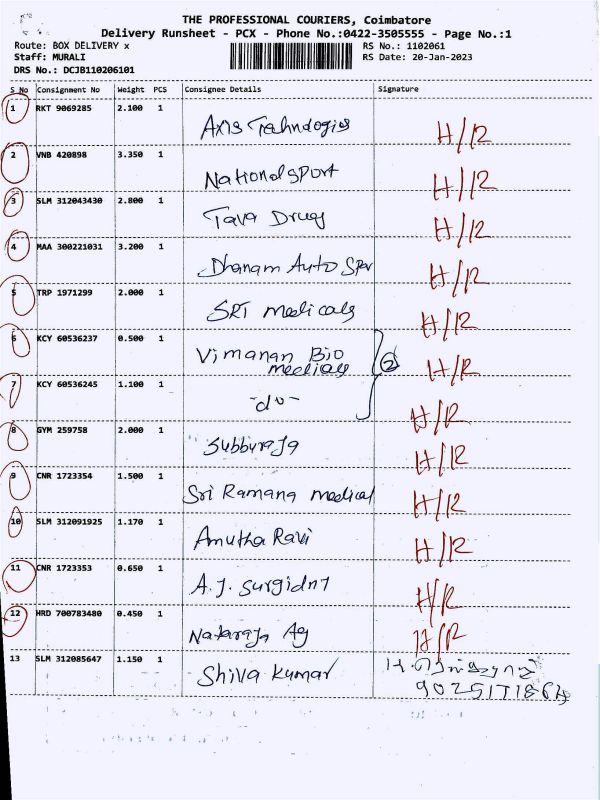 THE PROFESSIONAL COURIERS, Coimbatore
Delivery Runsheet - PCX - Phone No.:0422-3505555 - Page No.:1
Route: BOX DELIVERY x RS No.: 1102061
Staff: MURALI RS Date: 20-Jan-2023
DRS No.: DCJB110206101
S No Consignment No Weight PCS Consignee Details Signature
1 RKT 9069285 2.100 1
Axis Technologies H/R
2 VNB 420898 3.350 1
National sport H/R
3 SLM 312043430 2.800 1
Tava Drugs H/R
4 MAA 300221031 3.200 1
Dhanam Auto Spar H/R
5 TRP 1971299 2.000 1
SRI medicals H/R
6 KCY 60536237 0.500 1
Vimanan Bio medicals 2 H/R
7 KCY 60536245 1.100 1
-do- H/R
8 GYM 259758 2.000 1
Subburaja H/R
9 CNR 1723354 1.500 1
Sri Ramana medical H/R
10 SLM 312091925 1.170 1
Amutha Ravi H/R
11 CNR 1723353 0.650 1
A.J. H/R
12 HRD 700783480 0.450 1
Nataraja Ag H/R
13 SLM 312085647 1.150 1
Shiva kumar